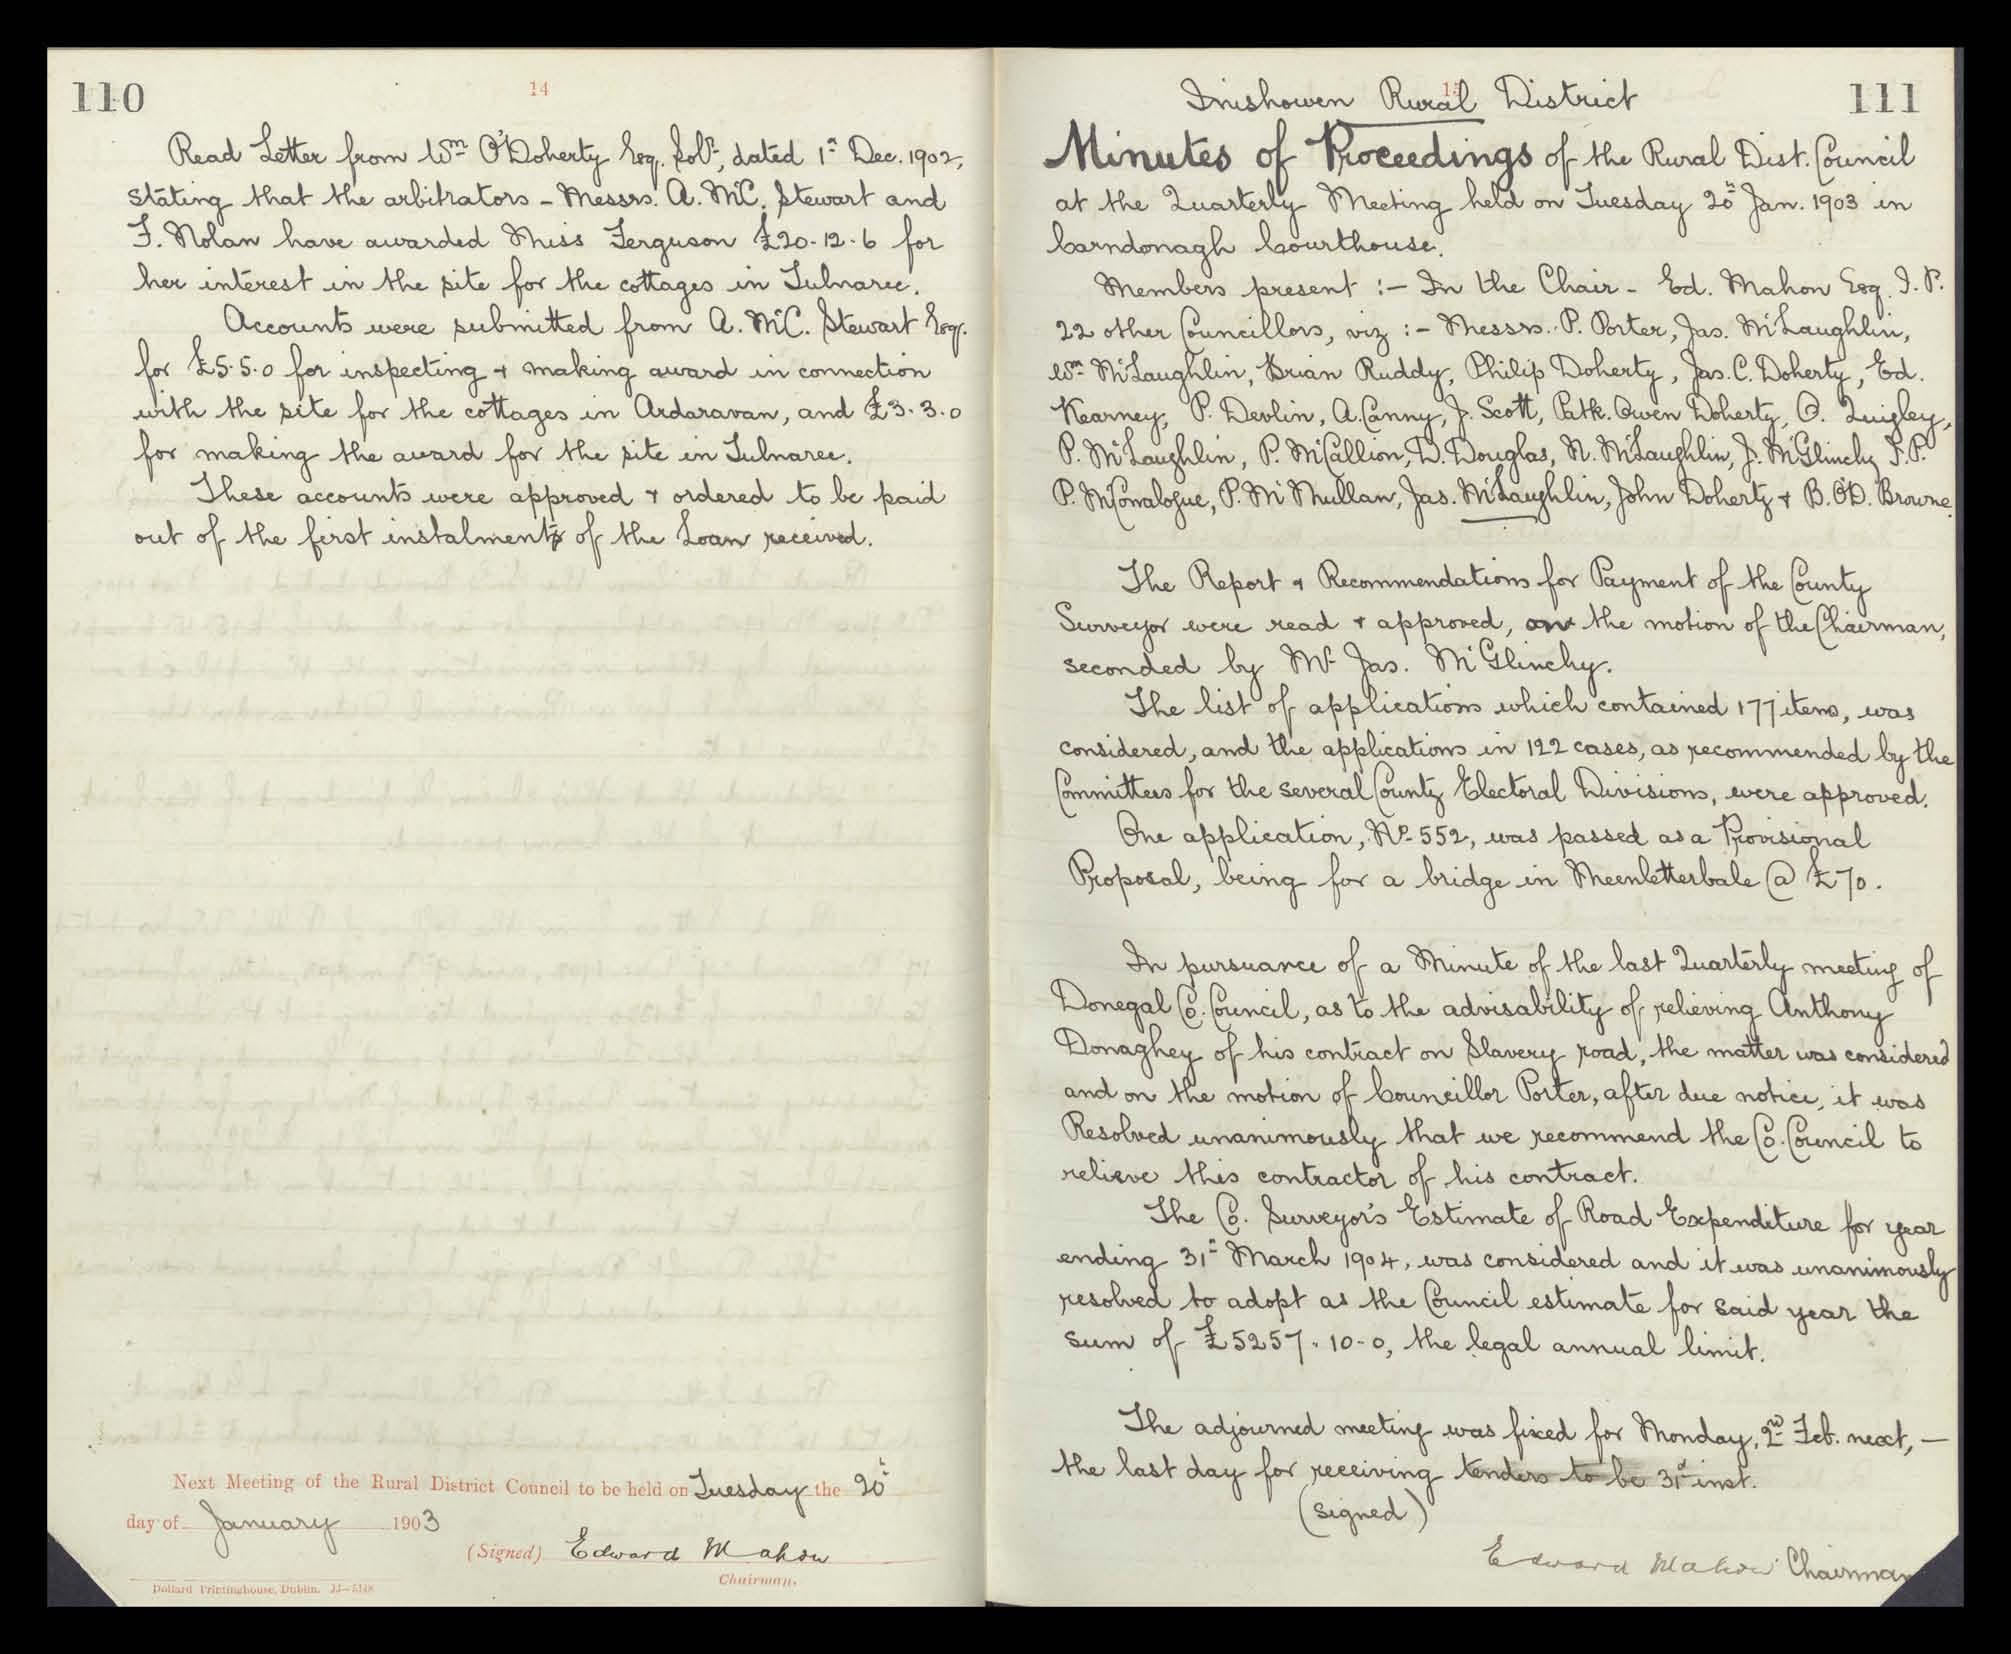 110
14
Read Letter from Wm O'Doherty Esq. Solr, dated 1st Dec. 1902,
stating that the arbitrators - Messrs. A. McC. Stewart and
F. Nolan have awarded Miss Ferguson £20-12-6 for
her interest in the site for the cottages in Tulnaree.
Accounts were submitted from A. McC. Stewart Esqr.
for £5.5.0 for inspecting & making award in connection
with the site for the cottages in Ardaravan, and £3.3.0
for making the award for the site in Tulnaree.
These accounts were approved & ordered to be paid
out of the first instalment of the Loan received.
Next Meeting of the Rural District Council to be held on Tuesday the 20th
day of January 1903
(Signed) Edward Mahon
Chairman.
Dollard Printinghouse, Dublin. JJ-5148
15
111
Inishowen Rural District
Minutes of Proceedings of the Rural Dist. Council
at the Quarterly Meeting held on Tuesday 20th Jan. 1903 in
Carndonagh Courthouse.
Members present :- In the Chair - Ed. Mahon Esq. J.P.
22 other Councillors, viz :- Messrs. P. Porter, Jas. McLaughlin,
Wm McLaughlin, Brian Ruddy, Philip Doherty, Jas. C. Doherty, Ed.
Kearney, P. Devlin, A. Canny, J. Scott, Patk. Owen Doherty, O. Quigley,
P. McLaughlin, P. McCallion, D. Douglas, N. McLaughlin, J. McGlinchy J.P.
P. McConalogue, P. McMullan, Jas. McLaughlin, John Doherty & B. O'D. Browne.
The Report & Recommendations for Payment of the County
Surveyor were read & approved, on the motion of the Chairman,
seconded by Mr Jas. McGlinchy.
The list of applications which contained 177 items, was
considered, and the applications in 122 cases, as recommended by the
Committees for the several County Electoral Divisions, were approved.
One application, No 552, was passed as a Provisional
Proposal, being for a bridge in Meenletterbale @ £70.
In pursuance of a Minute of the last Quarterly meeting of
Donegal Co. Council, as to the advisability of relieving Anthony
Donaghey of his contract on Slavery road, the matter was considered
and on the motion of Councillor Porter, after due notice, it was
Resolved unanimously that we recommend the Co. Council to
relieve this contractor of his contract.
The Co. Surveyor's Estimate of Road Expenditure for year
ending 31st March 1904, was considered and it was unanimously
resolved to adopt as the Council estimate for said year the
sum of £5257.10-0, the legal annual limit.
The adjourned meeting was fixed for Monday, 2nd Feb. next, —
the last day for receiving tenders to be 31st inst.
(signed)
Edward Mahon Chairman